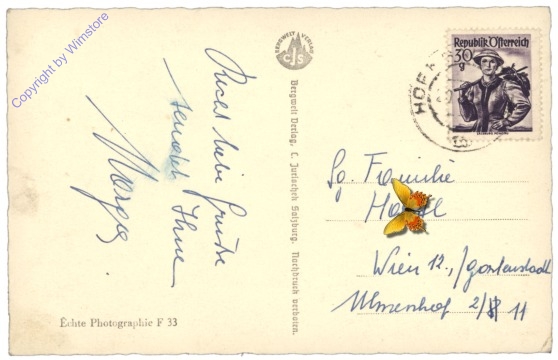 Copyright by Wimstore
Recht liebe Grüße
sendet Ihre
BERGWELT VERLAG
CJS
Bergwelt Verlag, C. Jurischek Salzburg. Nachdruck verboten.
Echte Photographie F 33
Republik Österreich
30
g
HOFG
Sg. Familie
Wien 12.,
Ulmenhof 2/8 11